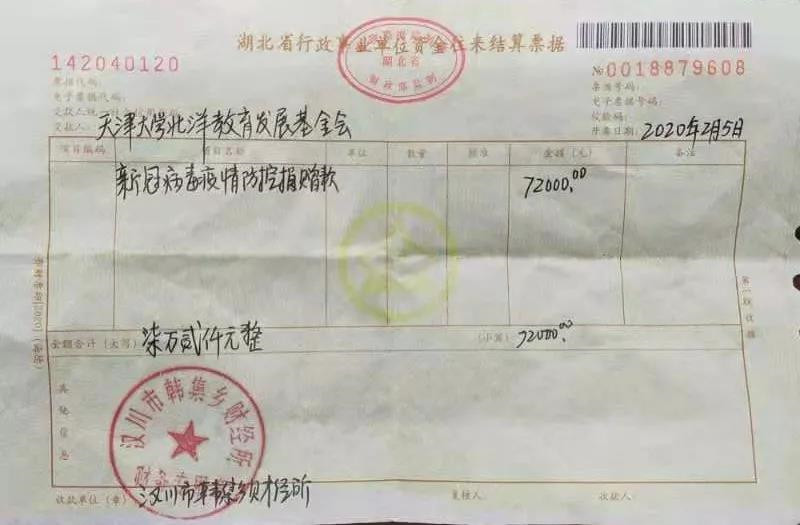 湖北省行政事业单位资金往来结算票据
湖北省
财政部监制
142040120
№0018879608
票据代码：
票据号码：
电子票据代码：
电子票据号码：
校验码：
交款人：天津大学北洋教育发展基金会
开票日期：2020年2月5日
项目编码 项目名称 单位 数量 标准 金额（元） 备注
新冠病毒疫情防控捐赠款 72000.00
金额合计（大写） 柒万贰仟元整 （小写） 72000.00
其他信息
汉川市韩集乡财经所
收款单位（章）： 汉川市韩集乡财经所 复核人： 收款人：
第二联 收据